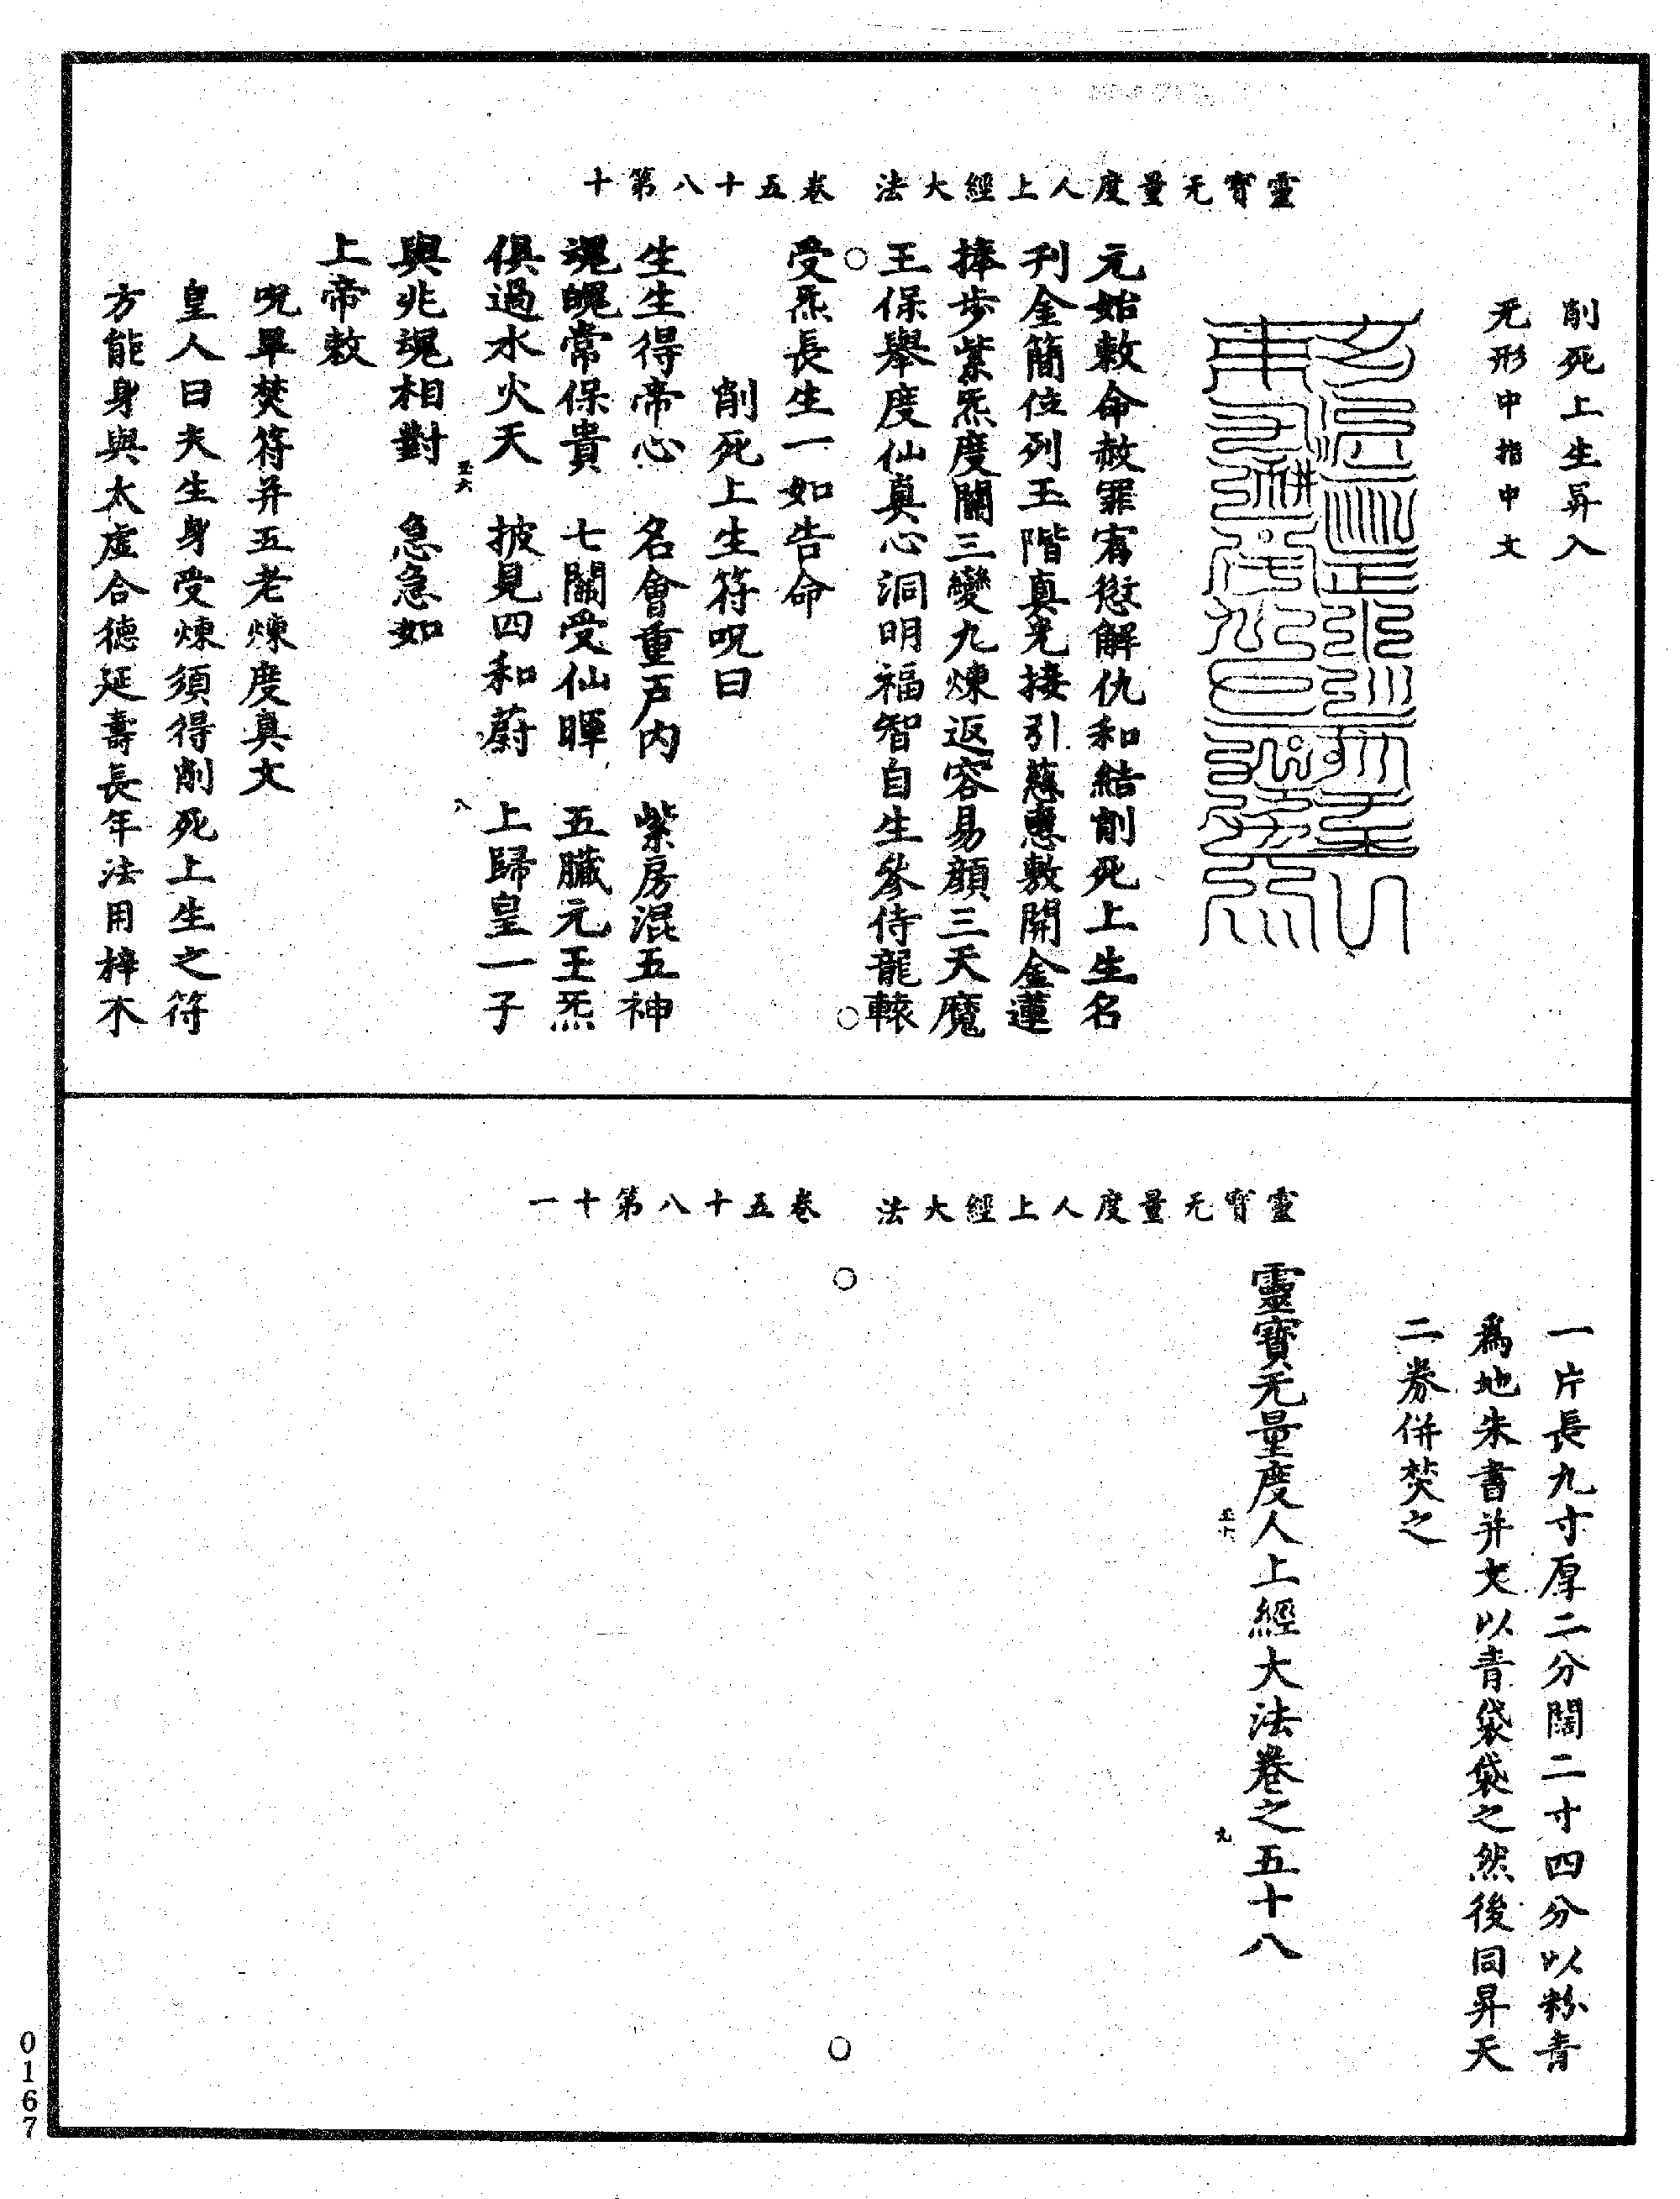 靈寶无量度人上經大法　卷五十八第十
削死上生昇入
无形中指中文
元始敕命赦罪宥愆解仇和結削死上生名
刊金簡位列玉階真光接引慈惠敷開金蓮
捧步紫炁度關三變九煉返容易顏三天魔
王保舉度仙真心洞明福智自生參侍龍轅
受炁長生一如告命
削死上生符呪曰
生生得帝心　名會重戶內　紫房混五神
魂魄常保貴　七關受仙暉　五臟元王炁
俱過水火天　披見四和蔚　上歸皇一子
五六　八
與兆魂相對　急急如
上帝敕
呪畢焚符并五老煉度真文
皇人曰夫生身受煉須得削死上生之符
方能身與太虛合德延壽長年法用梓木
靈寶无量度人上經大法　卷五十八第十一
一片長九寸厚二分闊二寸四分以粉青
爲地朱書并文以青袋袋之然後同昇天
二券併焚之
靈寶无量度人上經大法卷之五十八
五六　九
0167